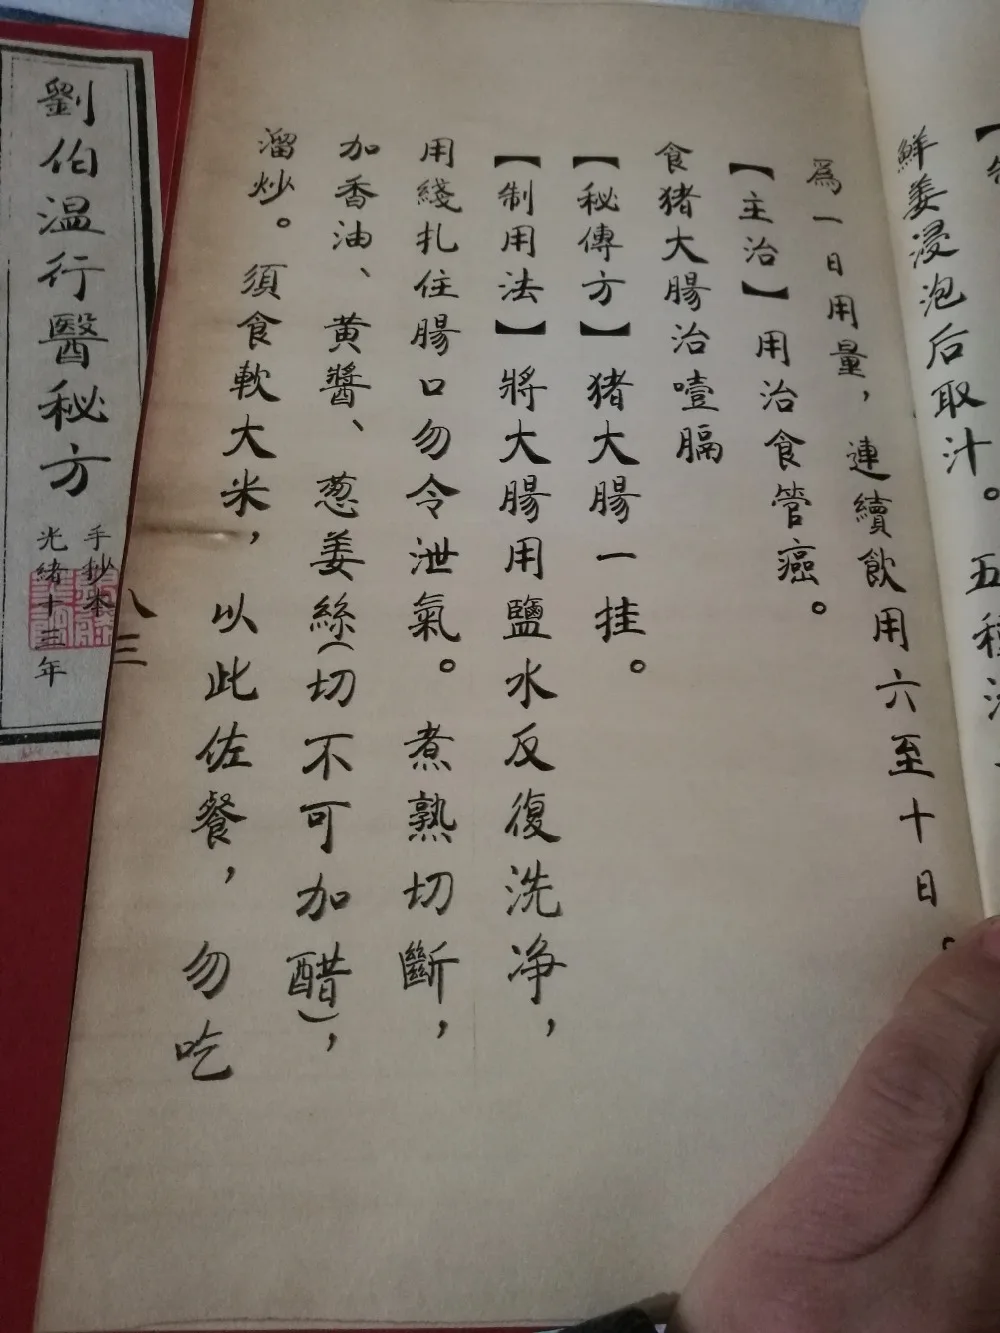 鮮姜浸泡后取汁。五種
為一日用量，連續飲用六至十日。
【主治】用治食管癌。
食猪大腸治噎膈
【秘傳方】猪大腸一挂。
【制用法】將大腸用鹽水反復洗净，
用綫扎住腸口勿令泄氣。煮熟切斷，
加香油、黄醬、葱姜絲（切不可加醋），
溜炒。須食軟大米，以此佐餐，勿吃
八三
劉伯温行醫秘方
手抄本
光緒十三年